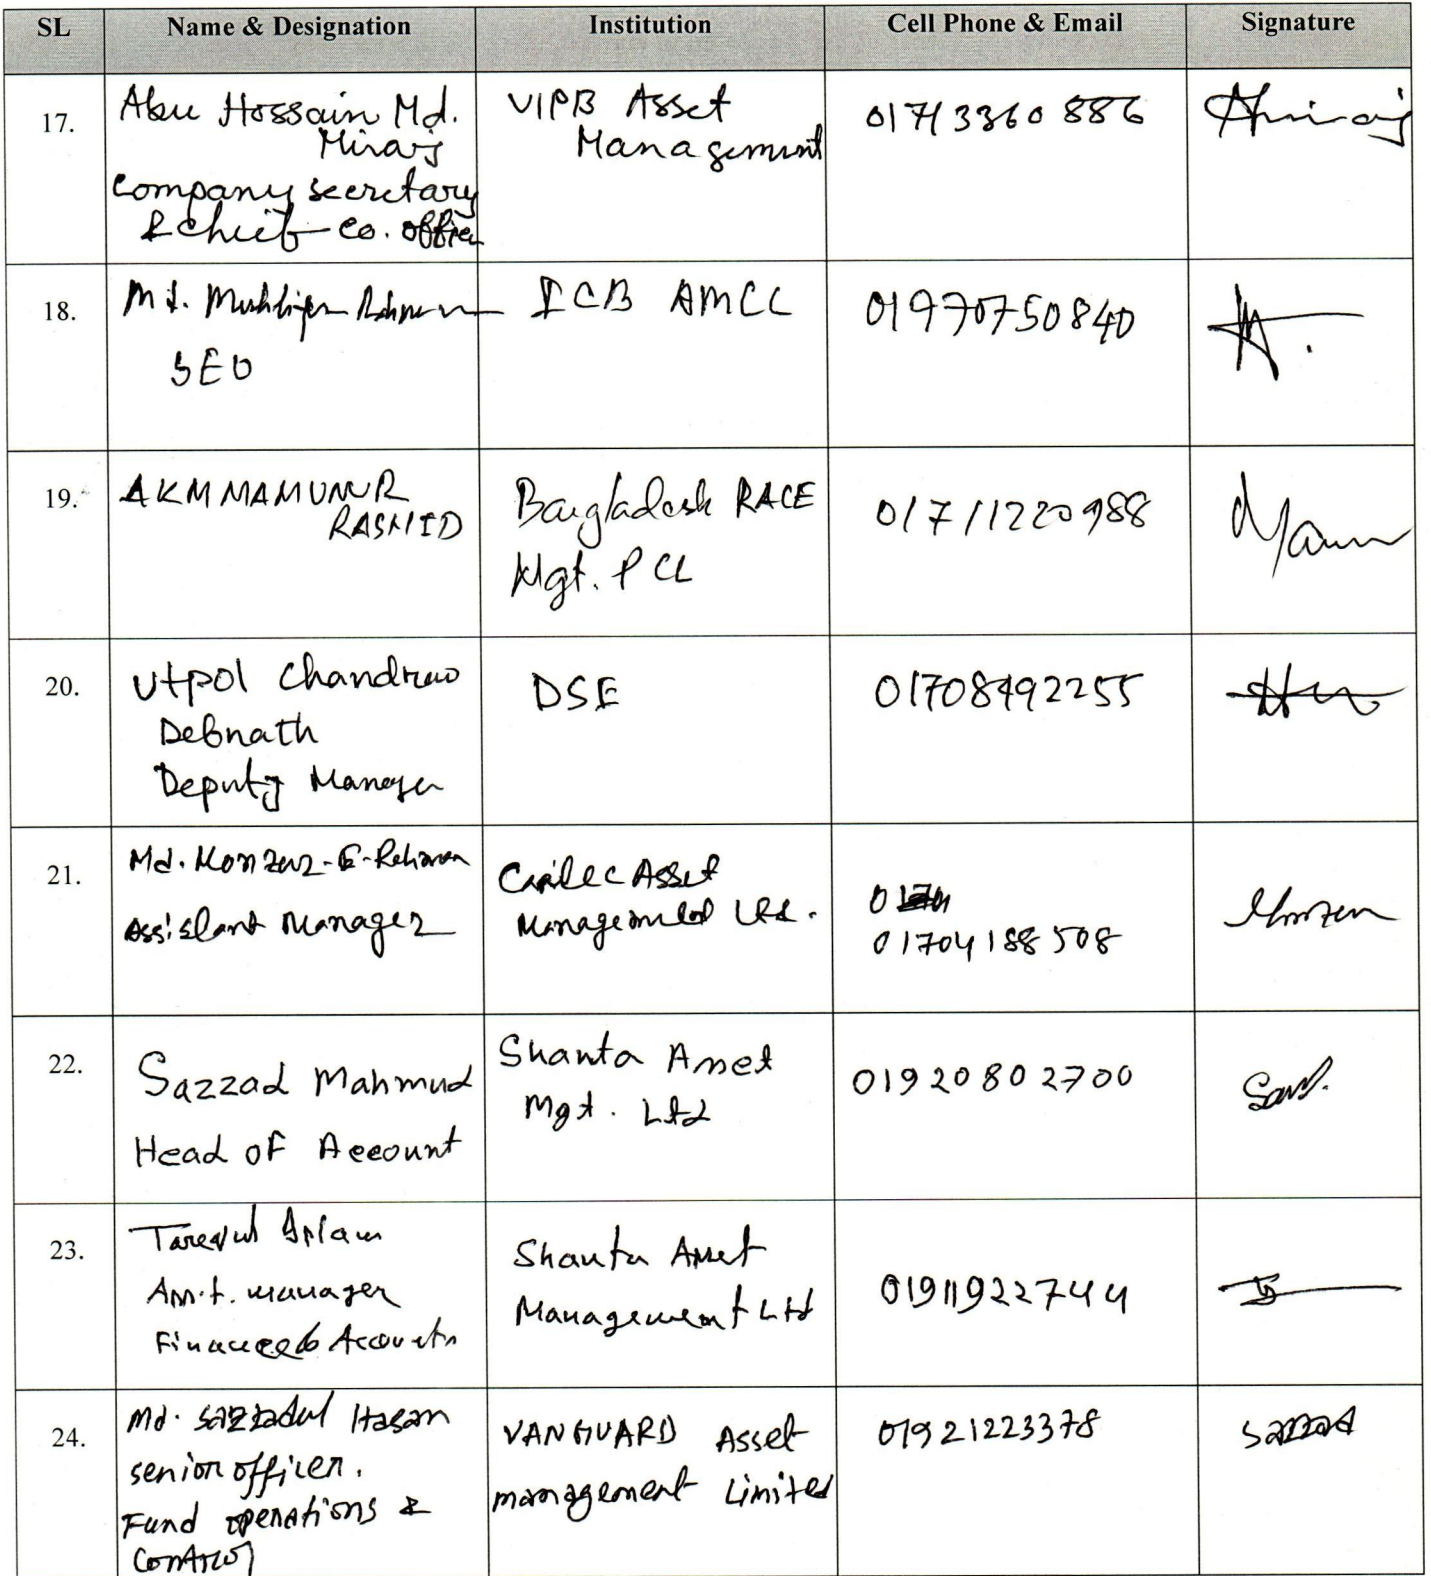 SL Name & Designation Institution Cell Phone & Email Signature
17.
Abu Hossain Md.
Miraj
Company secretary
& chief co. officer
VIPB Asset
Management
01713360886
18.
Md. Rahman
SEO
ICB AMCL
01970750840
19.
AKM MAMUNUR
RASHID
Bangladesh RACE
Mgt. PCL
01711220988
20.
Utpol Chandra
Debnath
Deputy Manager
DSE
01708492255
21.
Md. Monzur-E-Rehman
Assistant Manager
Asset
Management Ltd.
01704188508
22.
Sazzad Mahmud
Head of Account
Shanta Asset
Mgt. Ltd
01920802700
23.
Tarequl Islam
Asst. manager
Finance & Accounts
Shanta Asset
Management Ltd
01911922744
24.
Md. Sazzadul Hasan
senior officer.
Fund operations &
Control
VANGUARD Asset
management Limited
01921223378
Sazzad